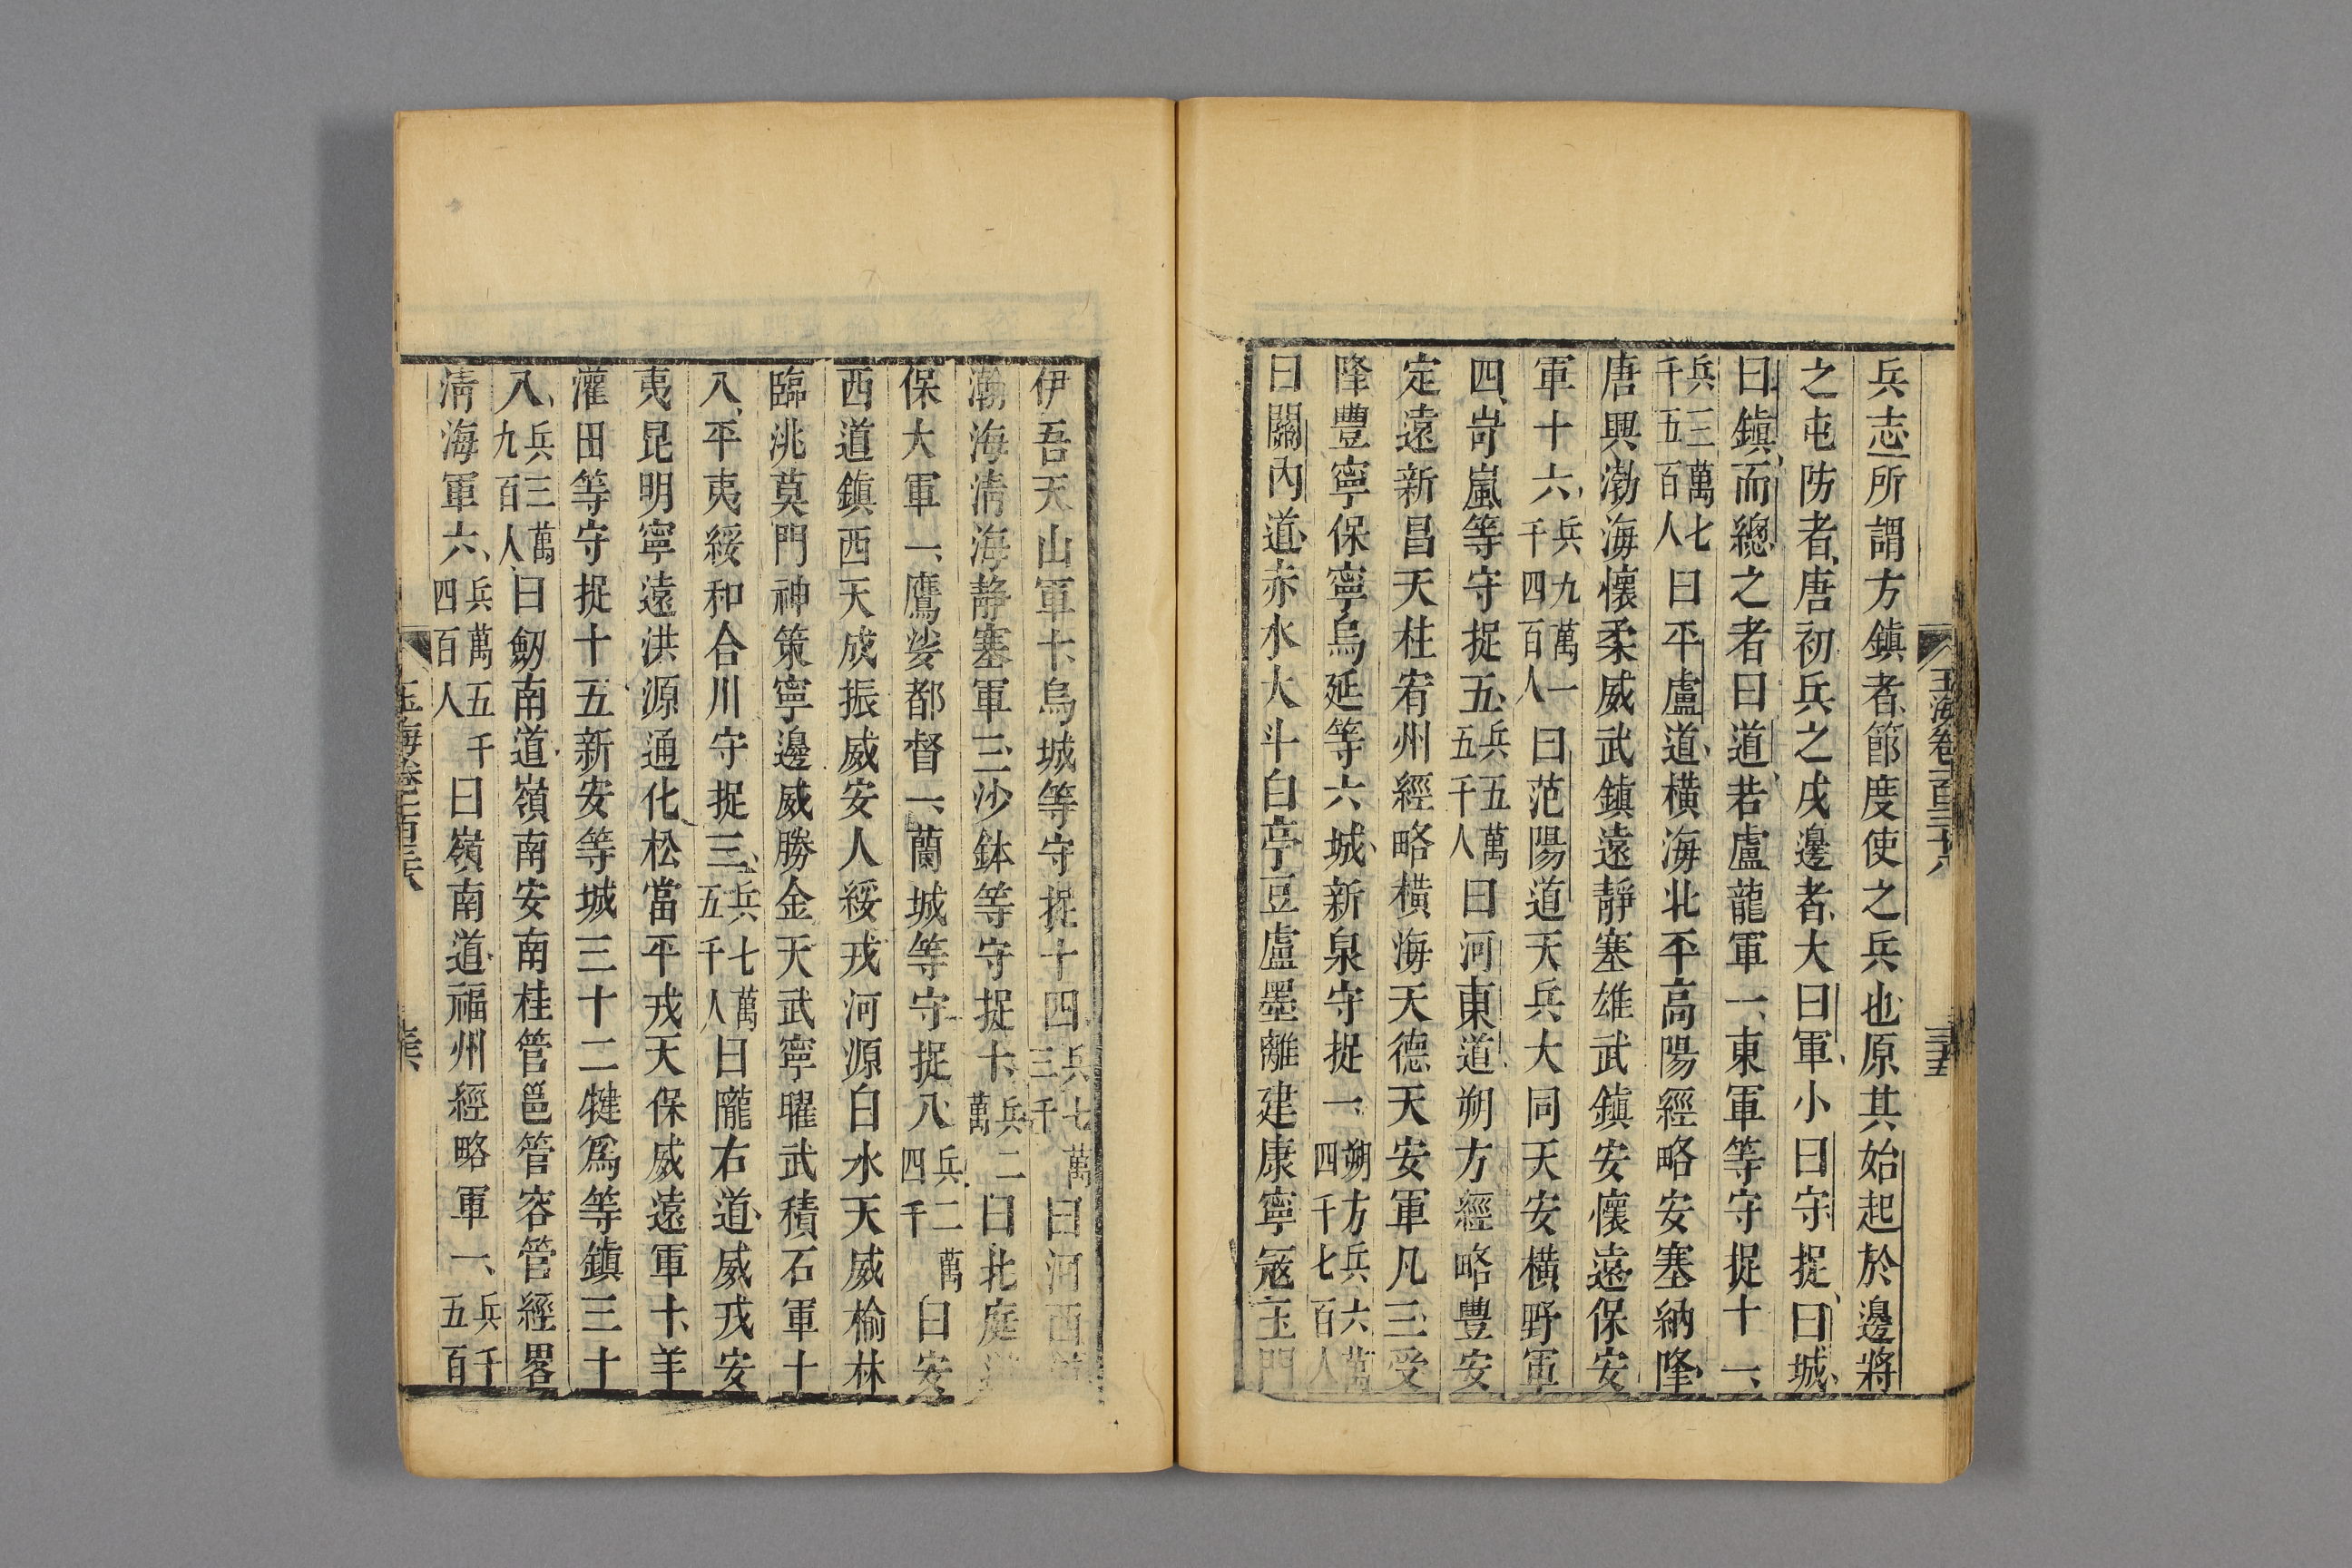 玉海卷一百三十八
兵志所謂方鎮者節度使之兵也原其始起於邊將
之屯防者唐初兵之戍邊者大曰軍小曰守捉曰城
曰鎮而總之者曰道若盧龍軍一東軍等守捉十一
兵三萬七千五百人曰平盧道橫海北平高陽經略安塞納降
唐興渤海懷柔威武鎮遠靜塞雄武鎮安懷遠保安
軍十六兵九萬一千四百人曰范陽道天兵大同天安橫野軍
四岢嵐等守捉五兵五萬五千人曰河東道朔方經略豐安
定遠新昌天柱宥州經略橫海天德天安軍凡三受
降豐寧保寧烏延等六城新泉守捉一朔方兵六萬四千七百人
曰關內道赤水大斗白亭豆盧墨離建康寧寇玉門
伊吾天山軍十烏城等守捉十四兵七萬三千曰河西道
瀚海清海靜塞軍三沙鉢等守捉十兵二萬曰北庭道
保大軍一鷹娑都督一蘭城等守捉八兵二萬四千曰安
西道鎮西天成振威安人綏戎河源白水天威榆林
臨洮莫門神策寧邊威勝金天武寧曜武積石軍十
八平夷綏和合川守捉三兵七萬五千人曰隴右道威戎安
夷昆明寧遠洪源通化松當平戎天保威遠軍十羊
灌田等守捉十五新安等城三十二犍爲等鎮三十
八兵三萬九百人曰劒南道嶺南安南桂管邕管容管經畧
清海軍六兵萬五千四百人曰嶺南道福州經略軍一兵千五百